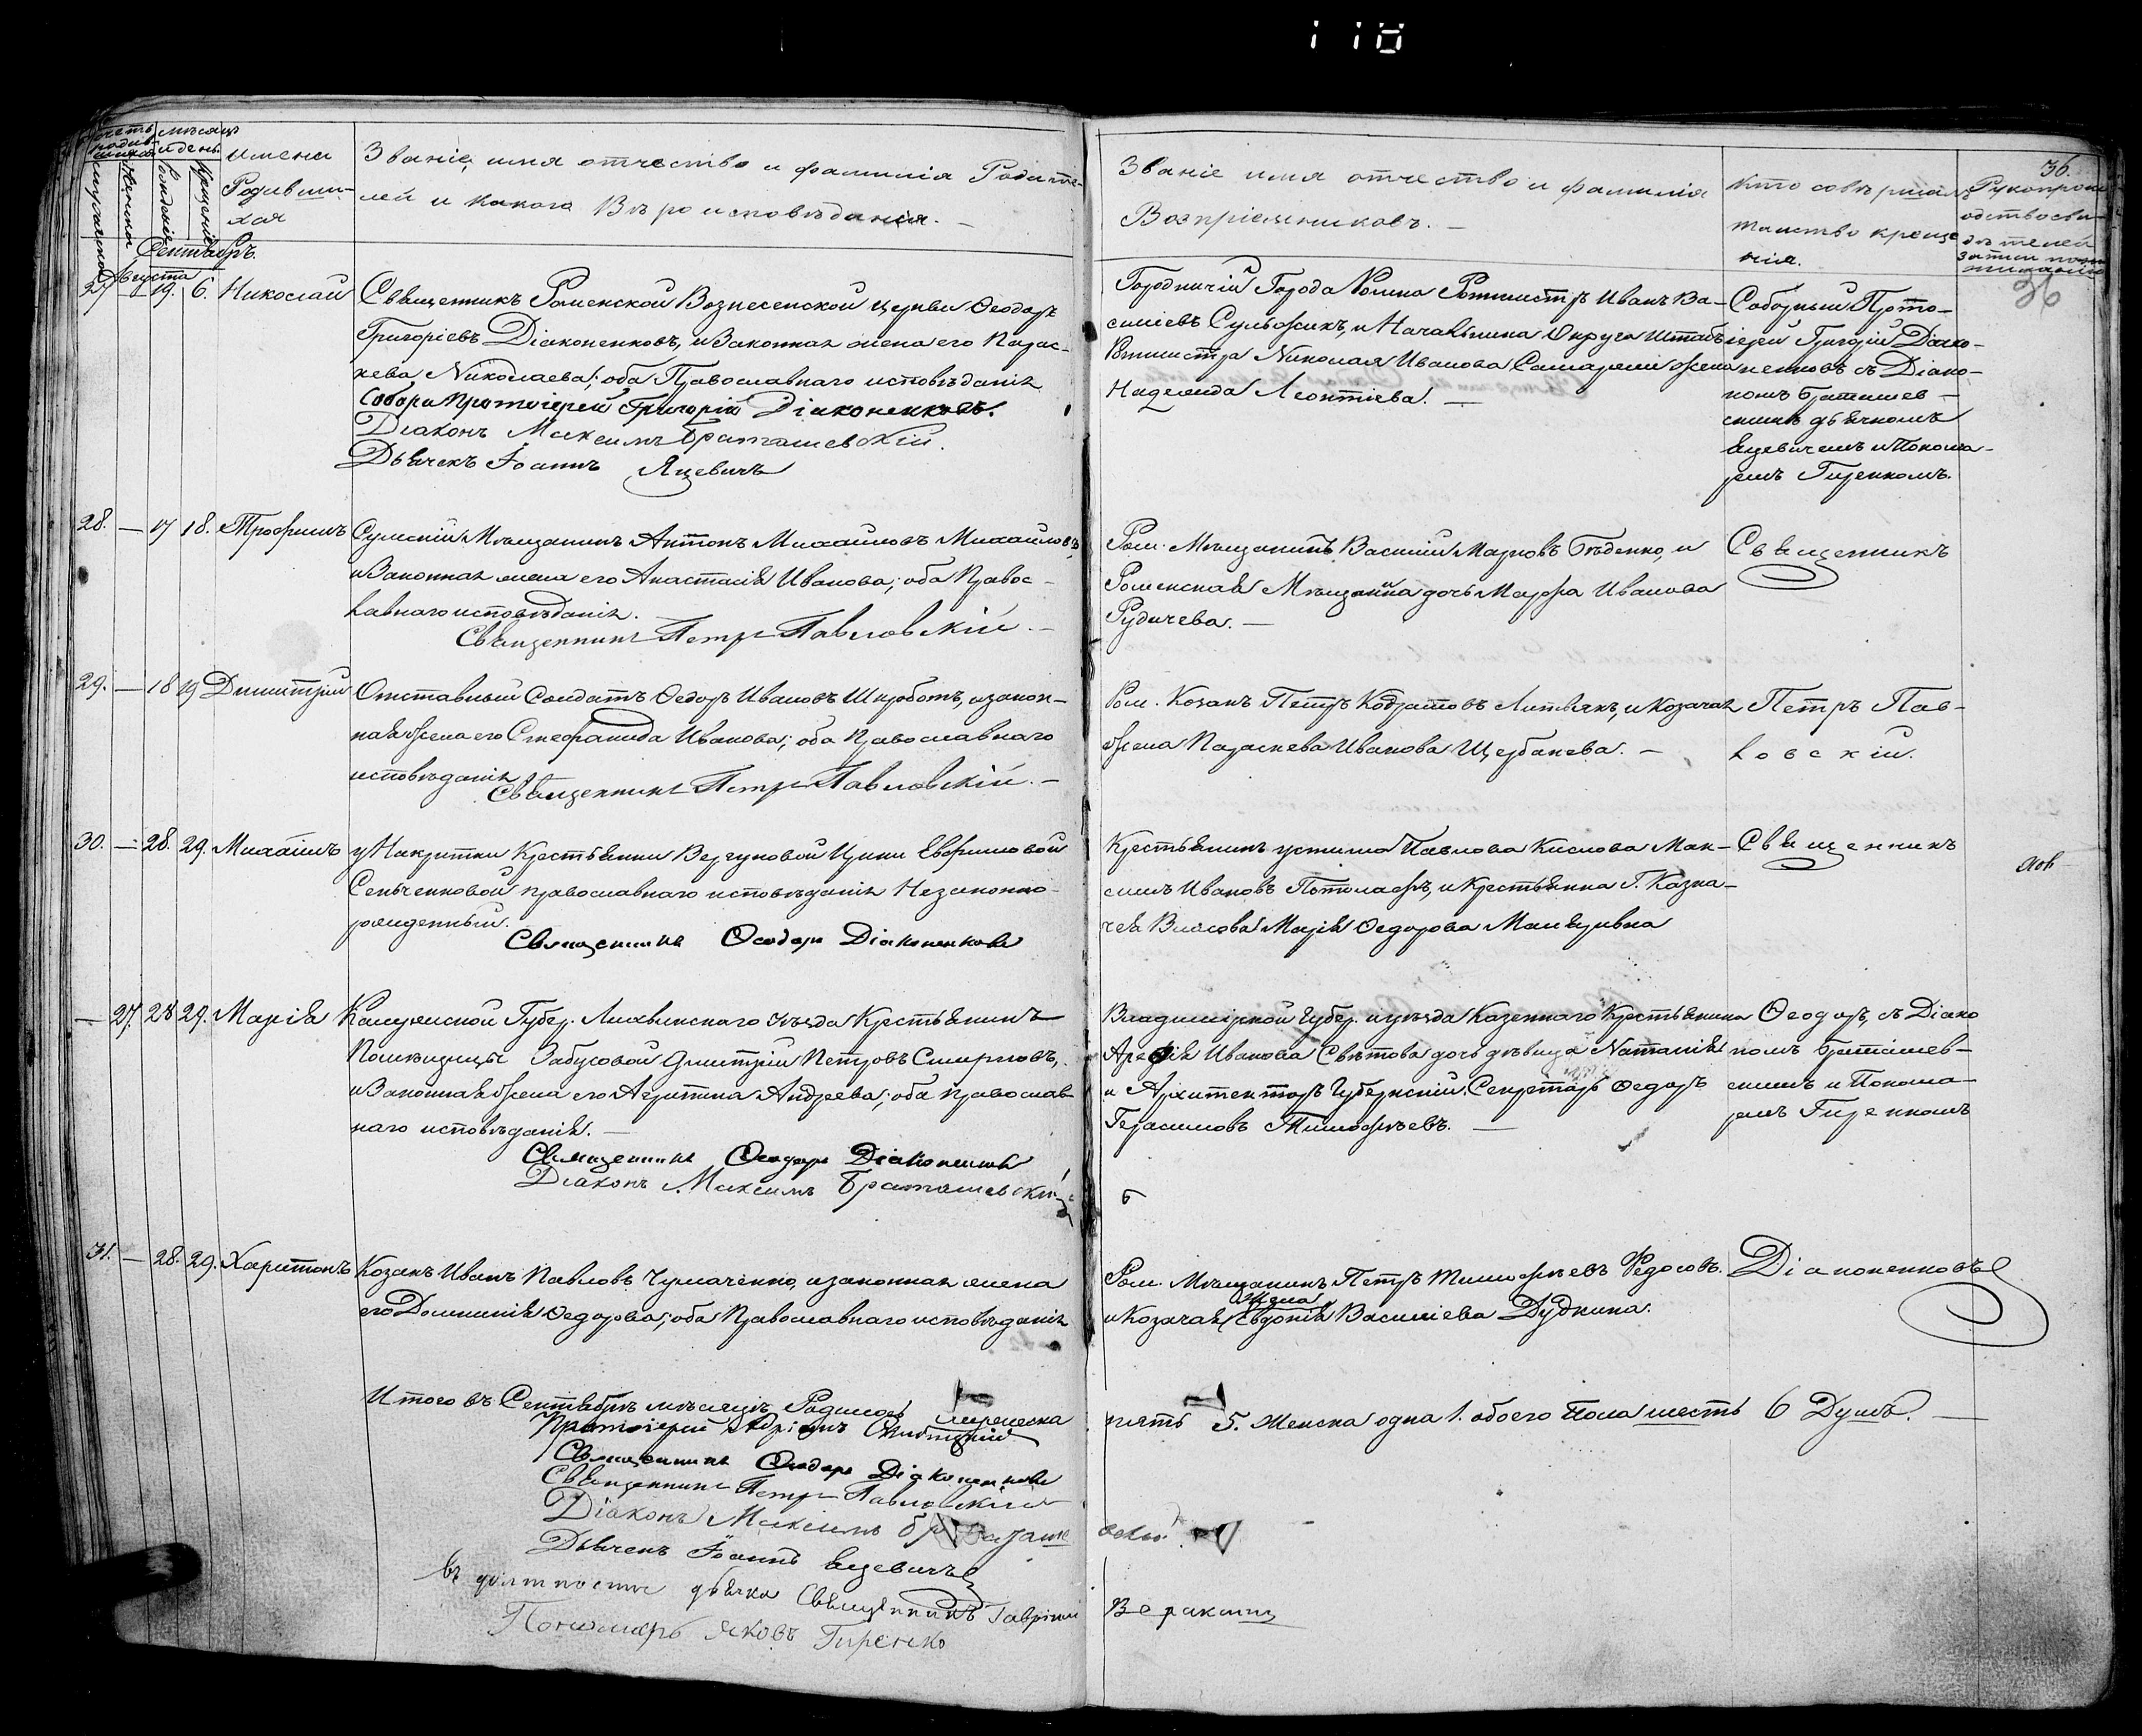 110
36.
36
Счетъ родив-
шихся
мѣсяцъ
и день.
имена
Родивши-
хся
мужеска
женска
рожденія
крещенія
Званіе, имя отчество и фамилія Родите-
лей и какого Вѣроисповѣданія. —
Званіе имя отчество и фамилія
Воспріемниковъ. —
Кто совершалъ
таинство креще
нія.
Сентябрь.
Августа
27 — 19. 6. Николай
Священникъ Роменской Вознесенской церкви Ѳеодоръ
Григоріевъ Діаконенковъ, и Законная жена его Парас-
кева Николаева; оба Православнаго исповѣданія
Собора Протоіерей Григорій Діаконенковъ.
Діаконъ Максимъ Браташевскій.
Дьячекъ Іоаннъ Яцевичъ
Городничій Города Ромна Ротмистръ Иванъ Ва-
силіевъ Сульжикъ, и Начальника Округа Штабъ
Ротмистра Николая Иванова Самареши жена
Надежда Леонтіева. —
Соборный Прото-
іерей Григорій Діако-
ненковъ съ Діако-
номъ Браташев-
скимъ дьячкомъ
Яцевичемъ и Понома-
ремъ Гиренкомъ.
28. — 17 18. Трофимъ
Сумскій Мѣщанинъ Антонъ Михайловъ Михайловъ
и Законная жена его Анастасія Иванова; оба Правос-
лавнаго исповѣданія.
Священникъ Петръ Павловскій. —
Ром. Мѣщанинъ Василій Марковъ Бѣденко, и
Роменская Мѣщанина дочь Марфа Иванова
Рудичева. —
Священникъ
29. — 18 19 Димитрій
Отставный Солдатъ Ѳедоръ Ивановъ Шкроботъ, и закон-
ная жена его Стефанида Иванова; оба Православнаго
исповѣданія
Священникъ Петръ Павловскій. —
Ром. Козакъ Петръ Кодратовъ Литвякъ, и Козачая
жена Параскева Иванова Щербакева. —
Петръ Пав-
ловскій.
30. — 28. 29. Михаилъ
у Накритки Крестьянки Вергуновой Ирины Евфимовой
Сеньченковой православнаго исповѣданія Незаконно-
рожденный.
Священникъ Ѳеодоръ Діаконенковъ
Крестьянинъ устима Павлова Кислова Мак-
симъ Ивановъ и Крестьянка Г. Казна-
чея Власова Марія Ѳедорова
Священникъ
— 27. 28 29. Марія
Калужской Губер. Лихвинскаго уѣзда Крестьянинъ
Помѣщицы Забусовой Дмитрій Петровъ Смирновъ,
и Законная жена его Агритина Андреева; оба православ-
наго исповѣданія. —
Священникъ Ѳеодоръ Діаконенковъ
Діаконъ Максимъ Браташевскій
Владимірской Губер. и уѣзда Казеннаго Крестьянина
Арефія Иванова Свѣтова дочь дѣвица Наталія
и Архитекторъ Губернскій Секретарь Ѳедоръ
Герасимовъ Тимофѣевъ. —
Ѳеодоръ, съ Діако
номъ Браташев-
скимъ и Понома-
ремъ Гиренкомъ
31. — 28. 29. Харитонъ
Козакъ Иванъ Павловъ Чумаченко, и законная жена
его Домникія Ѳедорова; оба Православнаго исповѣданія
Ром. Мѣщанинъ Петръ Тимофѣевъ Федосовъ.
жена
и Козачая Евдокія Василіева Дудкина.
Діаконенковъ
Итого въ Сентябрѣ мѣсяцѣ Родилось мужеска
пять 5. женска одна 1. обоего пола шесть 6 Душъ. —
Протоіерей
Священникъ Ѳеодоръ Діаконенковъ
Священникъ Петръ Павловскій
Діаконъ Максимъ Браташе
вскій
Дьячекъ Іоаннъ Яцевичъ
въ должности дьячка Священникъ Гавріилъ
Пономарь Яковъ Гиренко